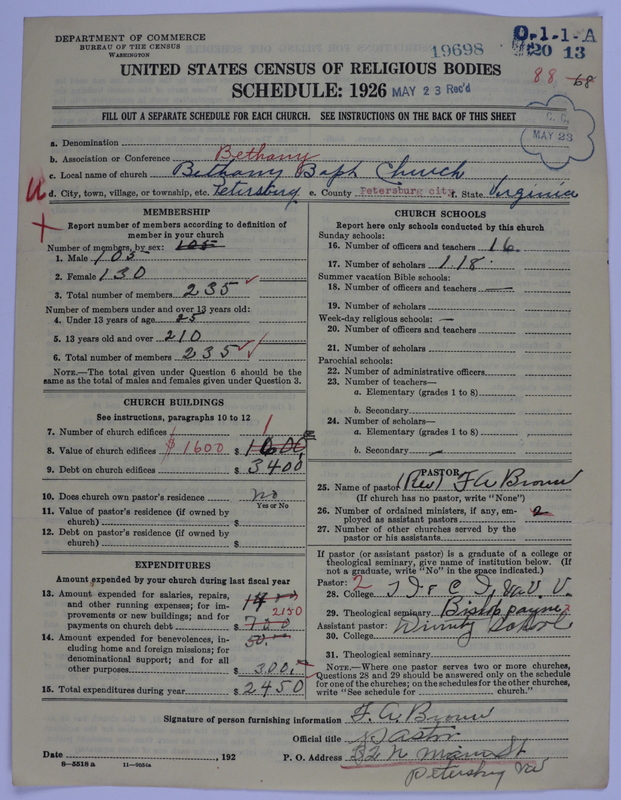 DEPARTMENT OF COMMERCE
BUREAU OF THE CENSUS
WASHINGTON
19698
0-1-1-A
20 13
88 68
UNITED STATES CENSUS OF RELIGIOUS BODIES
SCHEDULE: 1926 MAY 23 Rec'd
FILL OUT A SEPARATE SCHEDULE FOR EACH CHURCH. SEE INSTRUCTIONS ON THE BACK OF THIS SHEET
C. C.
MAY 23
a. Denomination
b. Association or Conference Bethany
c. Local name of church Bethany Bapt Church
d. City, town, village, or township, etc. Petersburg e. County Petersburg city f. State Virginia
MEMBERSHIP
Report number of members according to definition of
member in your church
Number of members, by sex: 105
1. Male 105
2. Female 130
3. Total number of members 235
Number of members under and over 13 years old:
4. Under 13 years of age 25
5. 13 years old and over 210
6. Total number of members 235
NOTE.—The total given under Question 6 should be
the same as the total of males and females given under Question 3.
CHURCH BUILDINGS
See instructions, paragraphs 10 to 12
7. Number of church edifices 1
8. Value of church edifices $1600 $ 1600
9. Debt on church edifices $ 3400
10. Does church own pastor's residence No
Yes or No
11. Value of pastor's residence (if owned by
church) $
12. Debt on pastor's residence (if owned by
church) $
EXPENDITURES
Amount expended by your church during last fiscal year
13. Amount expended for salaries, repairs,
and other running expenses; for im-
provements or new buildings; and for
payments on church debt 2150 $ 750
14. Amount expended for benevolences, in- 50.
cluding home and foreign missions; for
denominational support; and for all
other purposes $ 300.
15. Total expenditures during year $ 2450
CHURCH SCHOOLS
Report here only schools conducted by this church
Sunday schools:
16. Number of officers and teachers 16.
17. Number of scholars 118.
Summer vacation Bible schools:
18. Number of officers and teachers —
19. Number of scholars
Week-day religious schools: —
20. Number of officers and teachers
21. Number of scholars
Parochial schools:
22. Number of administrative officers
23. Number of teachers—
a. Elementary (grades 1 to 8)
b. Secondary
24. Number of scholars—
a. Elementary (grades 1 to 8)
b. Secondary —
PASTOR
25. Name of pastor (Rev) F. A. Brown
(If church has no pastor, write "None")
26. Number of ordained ministers, if any, em-
ployed as assistant pastors 2
27. Number of other churches served by the
pastor or his assistants
If pastor (or assistant pastor) is a graduate of a college or
theological seminary, give name of institution below. (If
not a graduate, write "No" in the space indicated.)
Pastor: 2
28. College
29. Theological seminary Bishop payne
Assistant pastor: Divinity School
30. College
31. Theological seminary
NOTE.—Where one pastor serves two or more churches,
Questions 28 and 29 should be answered only on the schedule
for one of the churches; on the schedules for the other churches,
write "See schedule for church."
Signature of person furnishing information F. A. Brown
Official title Pastor
Date , 192 P. O. Address 32 N Main St
Petersburg Va
8—5518 a 11—9054a